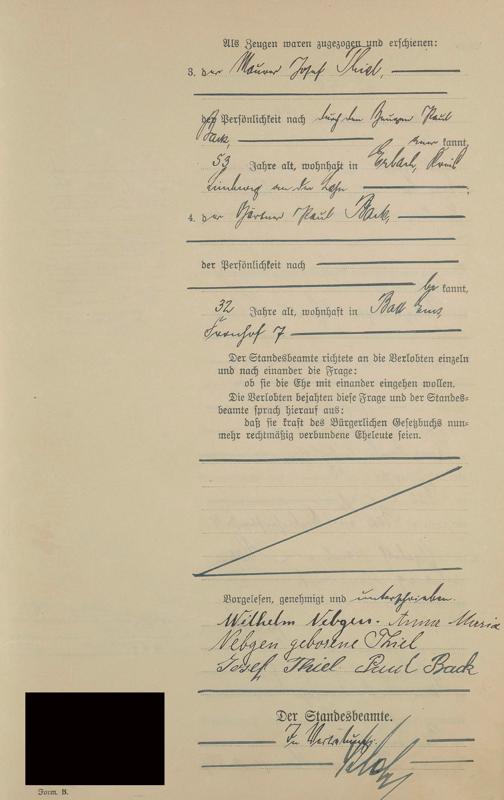 Als Zeugen waren zugezogen und erschienen:
3. der Maurer Josef Thiel,
der Persönlichkeit nach durch den Zeugen Paul
Back, anerkannt,
53 Jahre alt, wohnhaft in Erbach, Kreis
Limburg an der Lahn,
4. der Gärtner Paul Back,
der Persönlichkeit nach
be kannt,
32 Jahre alt, wohnhaft in Bad Ems,
Fronhof 7
Der Standesbeamte richtete an die Verlobten einzeln
und nach einander die Frage:
ob sie die Ehe mit einander eingehen wollen.
Die Verlobten bejahten diese Frage und der Standes-
beamte sprach hierauf aus:
daß sie kraft des Bürgerlichen Gesetzbuchs nun-
mehr rechtmäßig verbundene Eheleute seien.
Vorgelesen, genehmigt und unterschrieben.
Wilhelm Nebgen. Anna Maria
Nebgen geborene Thiel
Josef Thiel Paul Back
Der Standesbeamte.
In Vertretung.
Form. B.